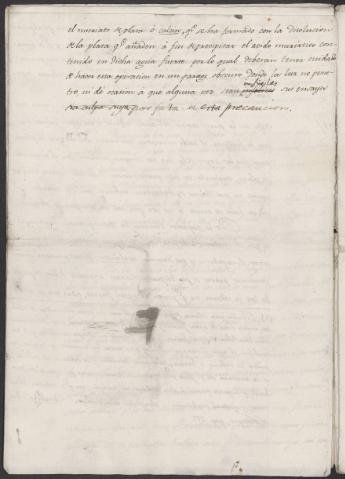 el muriato de plata ó calcer, qᵉ se ha formado con la disolucion
de la plata qᵉ añaden á fin de precipitar el acido muriatico con-
tenido en dicha agua fuerte por lo qual deberan tener cuidado
de hacer esta operacion en un parage obscuro donde la luz no pene-
tre, ni dé ocasion á que alguna vez sean
sus ensayes
por falta de esta precaucion.